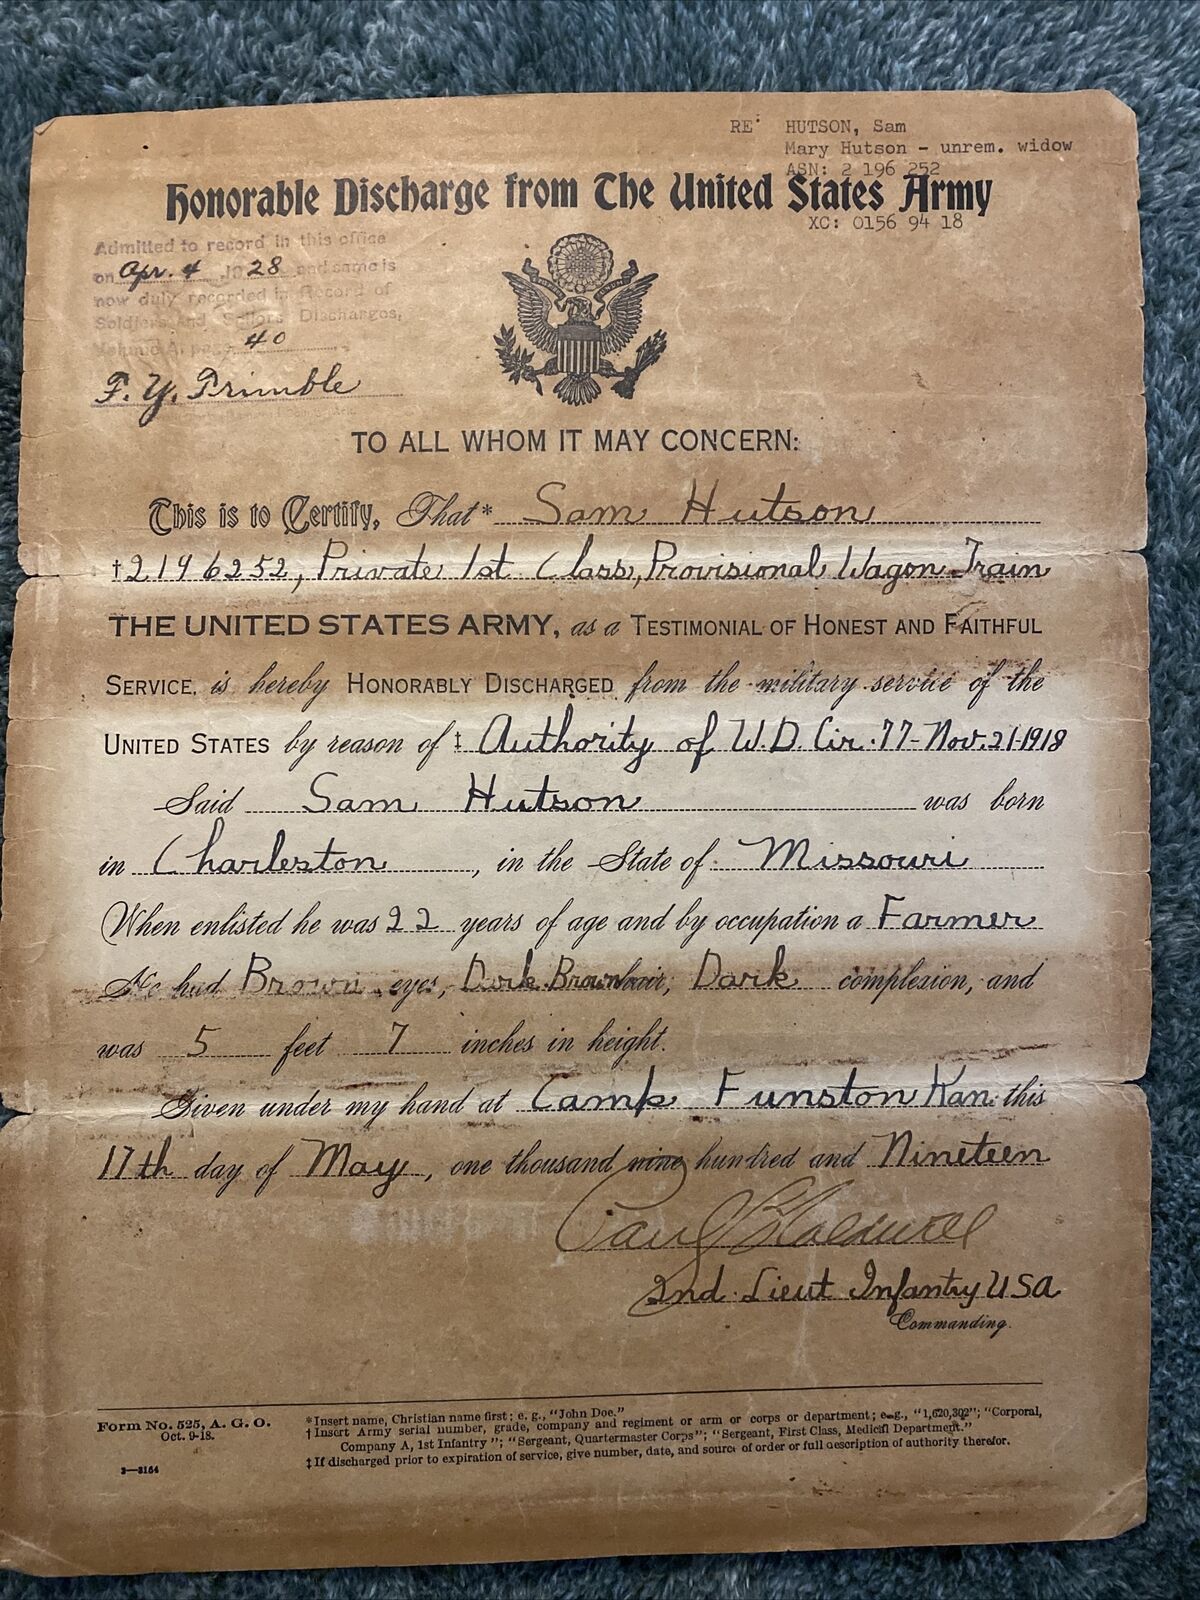 RE: HUTSON, Sam
Mary Hutson - unrem. widow
ASN: 2 196 252
Honorable Discharge from The United States Army
XC: 0156 94 18
Admitted to record in this office
on Apr. 4 1928 and same is
now duly recorded in Record of
Soldiers and Sailors Discharges,
Volume A, page 40
F. Y. Trimble
TO ALL WHOM IT MAY CONCERN:
This is to Certify, That* Sam Hutson
†2196252, Private 1st Class, Provisional Wagon Train
THE UNITED STATES ARMY, as a TESTIMONIAL OF HONEST AND FAITHFUL
SERVICE, is hereby HONORABLY DISCHARGED from the military service of the
UNITED STATES by reason of ‡ Authority of W.D. Cir. 77-Nov. 21-1918
Said Sam Hutson was born
in Charleston, in the State of Missouri
When enlisted he was 22 years of age and by occupation a Farmer
He had Brown eyes, Dark Brown hair, Dark complexion, and
was 5 feet 7 inches in height.
Given under my hand at Camp Funston Kan. this
17th day of May, one thousand nine hundred and Nineteen
2nd. Lieut Infantry USA
Commanding.
Form No. 525, A. G. O.
Oct. 9-18.
3—3164
*Insert name, Christian name first; e. g., "John Doe."
†Insert Army serial number, grade, company and regiment or arm or corps or department; e. g., "1,620,302"; "Corporal,
Company A, 1st Infantry"; "Sergeant, Quartermaster Corps"; "Sergeant, First Class, Medical Department."
‡If discharged prior to expiration of service, give number, date, and source of order or full description of authority therefor.